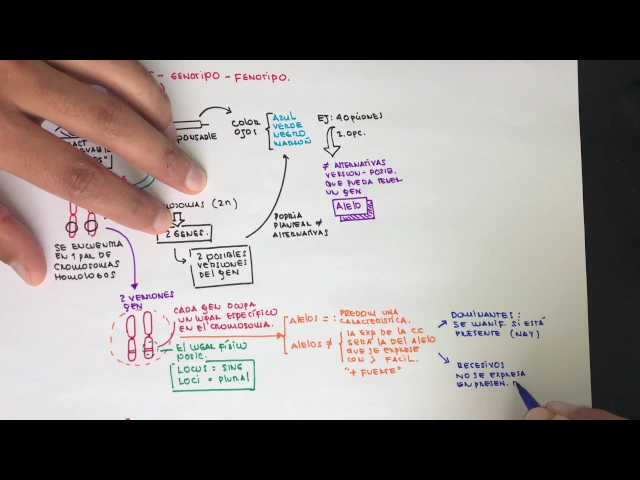 - GENOTIPO - FENOTIPO.
COLOR
OJOS
AZUL
VERDE
NEGRO
MARRON
EJ: 4 OPCIONES
2. OPC.
≠ ALTERNATIVAS
VERSION - POSIB.
QUE PUEDA TENER
UN GEN
Alelo
(2n)
2 GENES.
2 POSIBLES
VERSIONES
DEL GEN
PODRIA
PLANTEAR ≠
ALTERNATIVAS
SE ENCUENTRA
EN 1 PAR DE
CROMOSOMAS
HOMOLOGOS
2 VERSIONES
GEN
CADA GEN OCUPA
UN LUGAR ESPECÍFICO
EN EL CROMOSOMA.
EL LUGAR FÍSICO
POSIC.
LOCUS = SING
LOCI = PLURAL
Alelos = : PREDOM UNA
CARACTERÍSTICA.
Alelos ≠
LA EXP DE LA C.C
SERÁ LA DEL ALELO
QUE SE EXPRESE
CON > FACIL.
"+ FUERTE"
DOMINANTES:
SE MANIF. SI ESTÁ
PRESENTE (NAY)
RECESIVOS
NO SE EXPRESA
EN PRESEN.